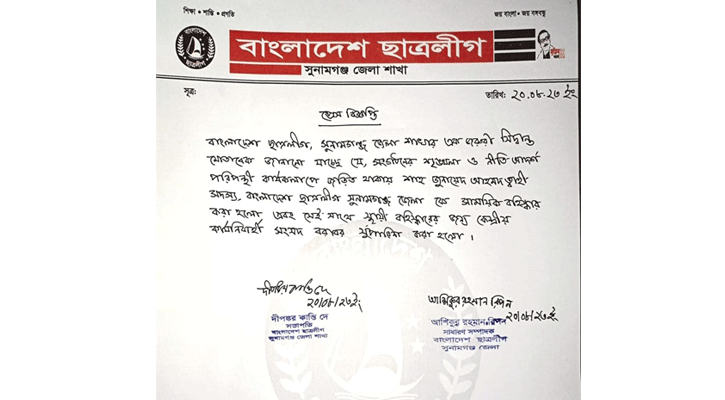 শিক্ষা • শান্তি • প্রগতি
জয় বাংলা • জয় বঙ্গবন্ধু
বাংলাদেশ
ছাত্রলীগ
বাংলাদেশ ছাত্রলীগ
সুনামগঞ্জ জেলা শাখা
সূত্র:
তারিখ: ২০.০৮.২৩ ইং
প্রেস বিজ্ঞপ্তি
বাংলাদেশ ছাত্রলীগ, সুনামগঞ্জ জেলা শাখার এক জরুরী সিদ্ধান্ত
মোতাবেক জানানো যাচ্ছে যে, সংগঠনের শৃঙ্খলা ও নীতি আদর্শ
পরিপন্থী কার্যকলাপে জড়িত থাকায় শাহ জুনায়েদ আহমদ
সদস্য, বাংলাদেশ ছাত্রলীগ সুনামগঞ্জ জেলা কে সাময়িক বহিষ্কার
করা হলো এবং সেই সাথে স্থায়ী বহিষ্কারের জন্য কেন্দ্রীয়
কার্যনির্বাহী সংসদ বরাবর সুপারিশ করা হলো।
দীপঙ্কর কান্তি দে
২০/০৮/২৩ইং
দীপঙ্কর কান্তি দে
সভাপতি
বাংলাদেশ ছাত্রলীগ
সুনামগঞ্জ জেলা শাখা
আশিকুর রহমান রিপন
২০/০৮/২৩ইং
আশিকুর রহমান রিপন
সাধারণ সম্পাদক
বাংলাদেশ ছাত্রলীগ
সুনামগঞ্জ জেলা